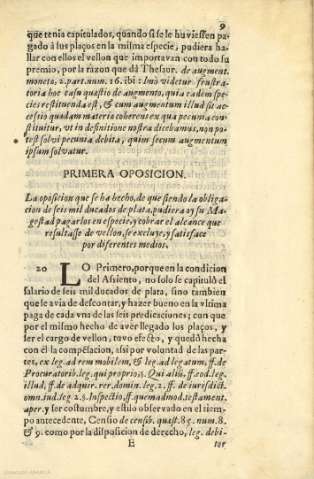 9
que tenia capitulados, quando si se le huviessen pa-
gado à sus plaços en la misma especie, pudiera ha-
llar con ellos el vellon que importavan con todo su
premio, por la razon que dà Thesaur. de augment.
moneta, 2. part. num. 26. ibi: Imò videtur frustra-
toria hoc casu questio de augmento, quia eadem spe-
cies restituenda est, & cum augmentum illud sit ac-
cessio quædam materia cohærens ex qua pecunia con-
stituitur, vt in definitione nostra dicebamus, non po-
test solvi pecunia debita, quin secum augmentum
ipsum solvatur.
PRIMERA OPOSICION.
La oposicion que se ha hecho, de que siendo la obliga-
cion de seis mil ducados de plata, pudiera oy su Ma-
gestad pagarlos en especie, y cobrar el alcance que
resultasse de vellon, se excluye, y satisface
por diferentes medios.
20 LO Primero, porque en la condicion
del Assiento, no solo se capitulò el
salario de seis mil ducados de plata, sino tambien
que se avia de descontar, y hazer bueno en la vltima
paga de cada vna de las seis predicaciones; con que
por el mismo hecho de aver llegado los plaços, y
ser el cargo de vellon, tuvo efecto, y quedò hecha
con èl la compẽsacion, assi por voluntad de las par-
tes, ex leg. ad rem mobilem, & leg. ad legatum, ff. de
Procuratorib. leg. qui proprio, §. Qui alib. ff. eod. leg.
illud, ff. de adquir. rer. domin. leg. 2. ff. de iurisdict.
omn. iud. leg. 2. §. Inspectio, ff. quemadmod. testament.
aper. y ser costumbre, y estilo observado en el tiem-
po antecedente, Censio de censib. quæst. 8 g. num. 8.
& 9. como por la disposicion de derecho, leg. debi-
E
tor